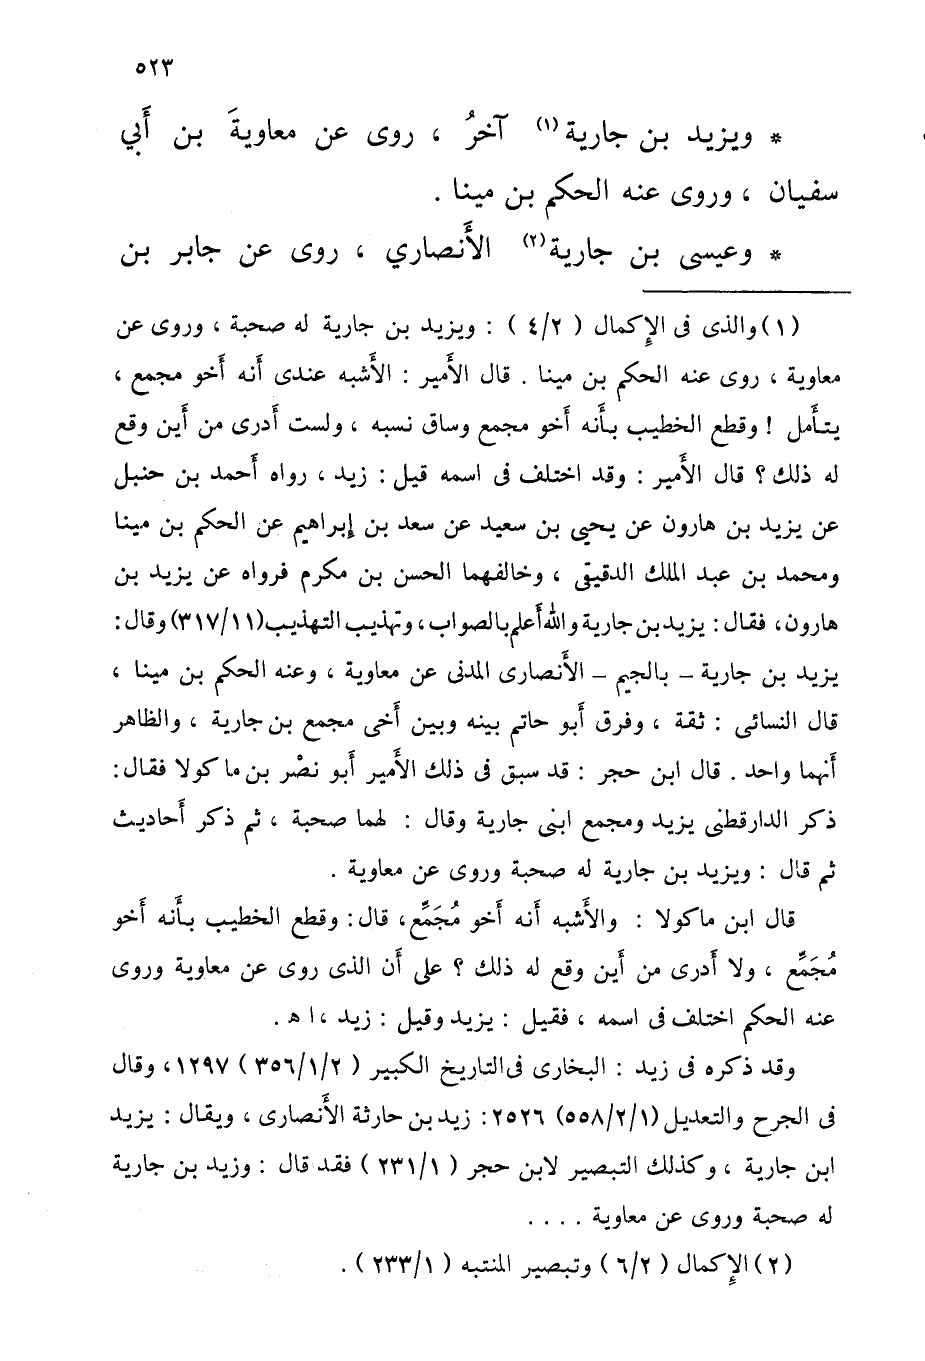 ٥٢٣
* ويزيد بن جارية(١) آخرُ ، روى عن معاويةَ بن أَبي
سفيان ، وروى عنه الحكم بن مينا .
* وعيسى بن جارية(٢) الأَنصاري ، روى عن جابر بن
(١) والذى فى الإِكمال ( ٤/٢ ) : ويزيد بن جارية له صحبة ، وروى عن
معاوية ، روى عنه الحكم بن مينا . قال الأَمير : الأَشبه عندى أَنه أَخو مجمع ،
يتأَمل ! وقطع الخطيب بأَنه أَخو مجمع وساق نسبه ، ولست أَدرى من أَين وقع
له ذلك ؟ قال الأَمير : وقد اختلف فى اسمه قيل : زيد ، رواه أَحمد بن حنبل
عن يزيد بن هارون عن يحيى بن سعيد عن سعد بن إِبراهيم عن الحكم بن مينا
ومحمد بن عبد الملك الدقيقى ، وخالفهما الحسن بن مكرم فرواه عن يزيد بن
هارون، فقال : يزيد بن جارية والله أَعلم بالصواب ، وتهذيب التهذيب (٣١٧/١١) وقال :
يزيد بن جارية – بالجيم – الأَنصارى المدنى عن معاوية ، وعنه الحكم بن مينا ،
قال النسائى : ثقة ، وفرق أَبو حاتم بينه وبين أَخى مجمع بن جارية ، والظاهر
أَنهما واحد . قال ابن حجر : قد سبق فى ذلك الأَمير أَبو نصْر بن ماكولا فقال :
ذكر الدارقطنى يزيد ومجمع ابنى جارية وقال : لهما صحبة ، ثم ذكر أَحاديث
ثم قال : ويزيد بن جارية له صحبة وروى عن معاوية .
قال ابن ماكولا : والأَشبه أَنه أَخو مُجَمِّع، قال : وقطع الخطيب بأَنه أَخو
مُجَمِّع ، ولا أَدرى من أَين وقع له ذلك ؟ على أَن الذى روى عن معاوية وروى
عنه الحكم اختلف فى اسمه ، فقيل : يزيد وقيل : زيد ، ا ه .
وقد ذكره فى زيد : البخارى فى التاريخ الكبير ( ٣٥٦/١/٢ ) ١٢٩٧، وقال
فى الجرح والتعديل (٥٥٨/٢/١) ٢٥٢٦ : زيد بن حارثة الأَنصارى ، ويقال : يزيد
ابن جارية ، وكذلك التبصير لابن حجر ( ٢٣١/١ ) فقد قال : وزيد بن جارية
له صحبة وروى عن معاوية . . . .
(٢) الإِكمال ( ٦/٢ ) وتبصير المنتبه ( ٢٣٣/١ ) .